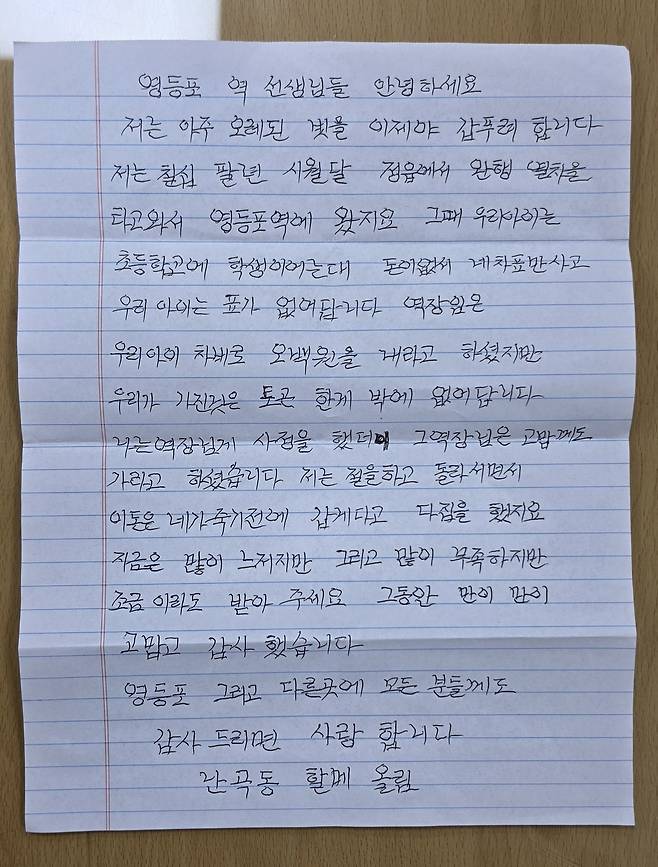 영등포 역 선생님들 안녕하세요
저는 아주 오레된 빛을 이제야 갑푸려 합니다
저는 칠십 팔년 시월달 정읍에서 완행 열차을
타고와서 영등포역에 왔지요 그때 우리아이는
초등학고에 학생이어는대 돈이없서 네차표만사고
우리 아이는 표가 없어답니다 역장임은
우리아이 차비로 오백원을 내라고 하셨지만
우리가 가진것은 토근 한게 밖에 없어답니다
나는역장님게 사정을 했더니 그역장님은 고맙게도
가라고 하셨습니다 저는 절을하고 돌라서면서
이돈은 네가죽기전에 갑게다고 다짐을 했지요
지금은 많이 느저지만 그리고 많이 부족하지만
조금 이라도 받아 주세요 그동안 만이 만이
고맙고 감사 했습니다
영등포 그리고 다른곳에 모든 분들께도
감사 드리면 사람 합니다
난곡동 할메 올림